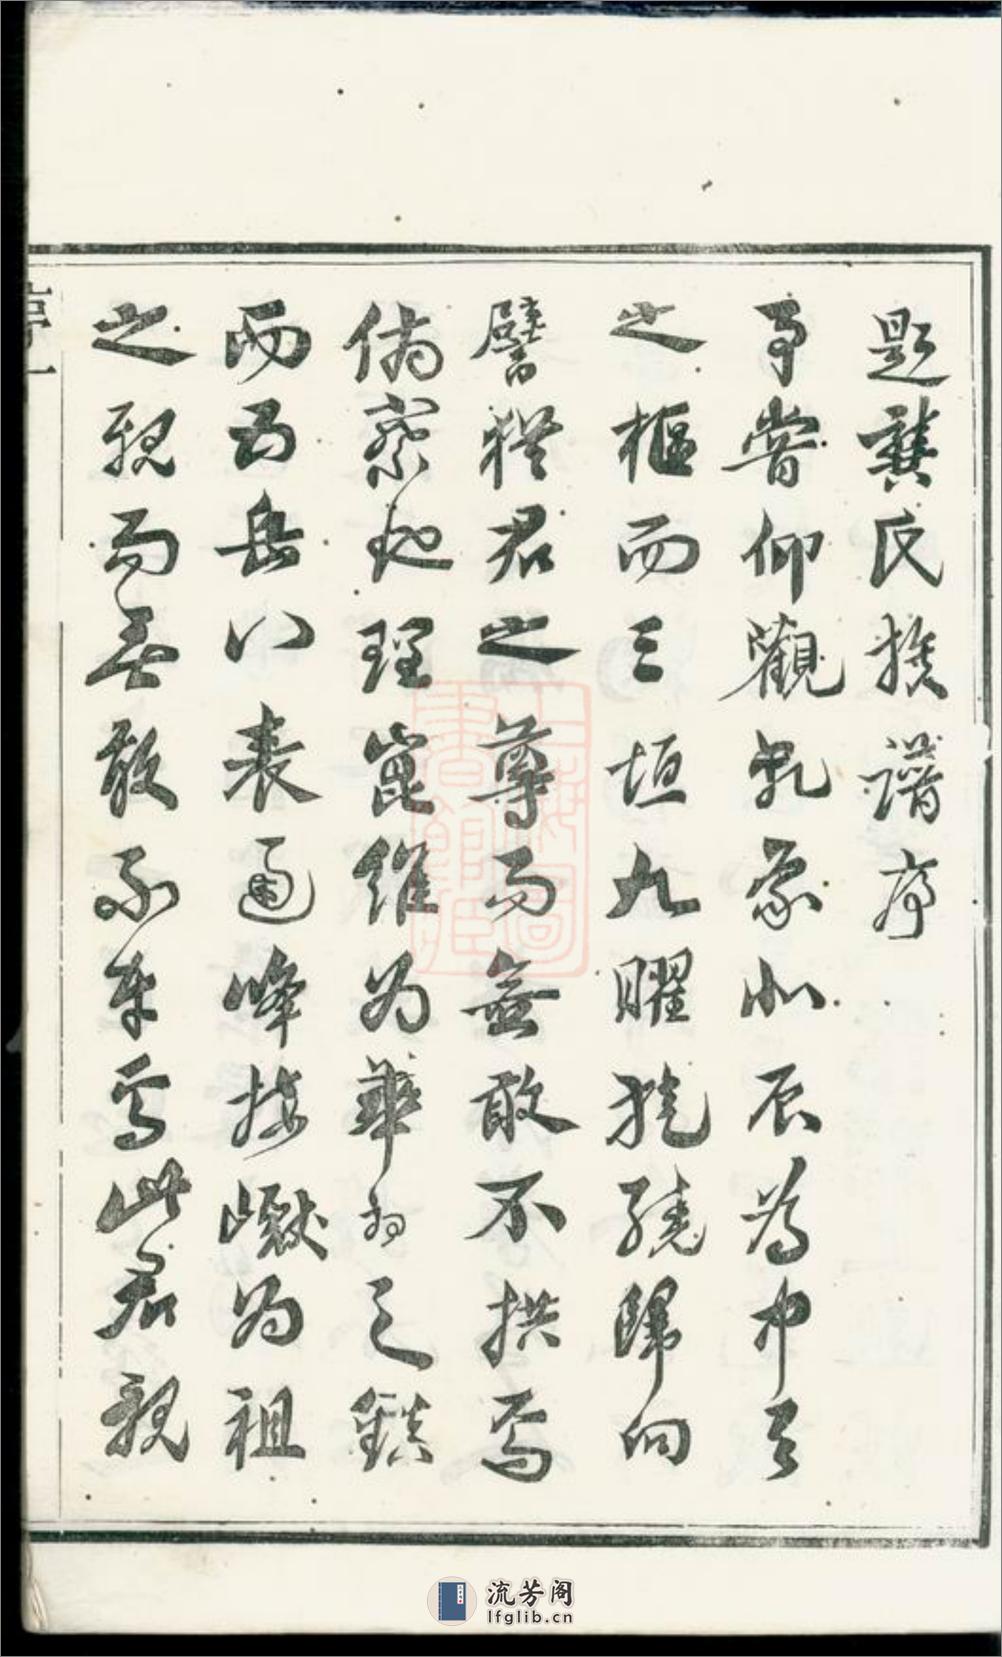 題龔氏族譜序
予嘗仰觀乾象北辰為中天
之樞而三垣九曜旋繞歸向
譬猶君之尊而無敢不拱焉
俯察地理崑維為華之鎮
而五岳八表通峰接巘為祖
之親而無敢不本焉此君親
序一
流芳阁
lfglib.cn